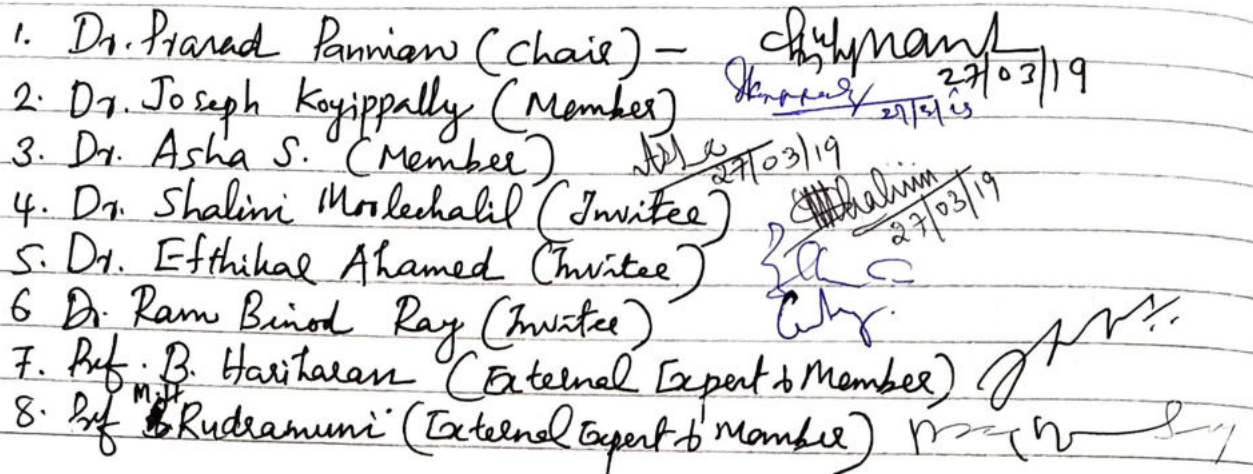 1. Dr. Prasad Pannian (Chair) - 27/03/19
2. Dr. Joseph Koyippally (Member)
3. Dr. Asha S. (Member) Asha 27/03/19
4. Dr. Shalini Moolechalil (Invitee) Shalini 27/03/19
5. Dr. Efthikar Ahamed (Invitee)
6 Dr. Ram Binod Ray (Invitee)
7. Prof. B. Hariharan (External Expert & Member)
8. Prof Rudramuni (External Expert & Member)